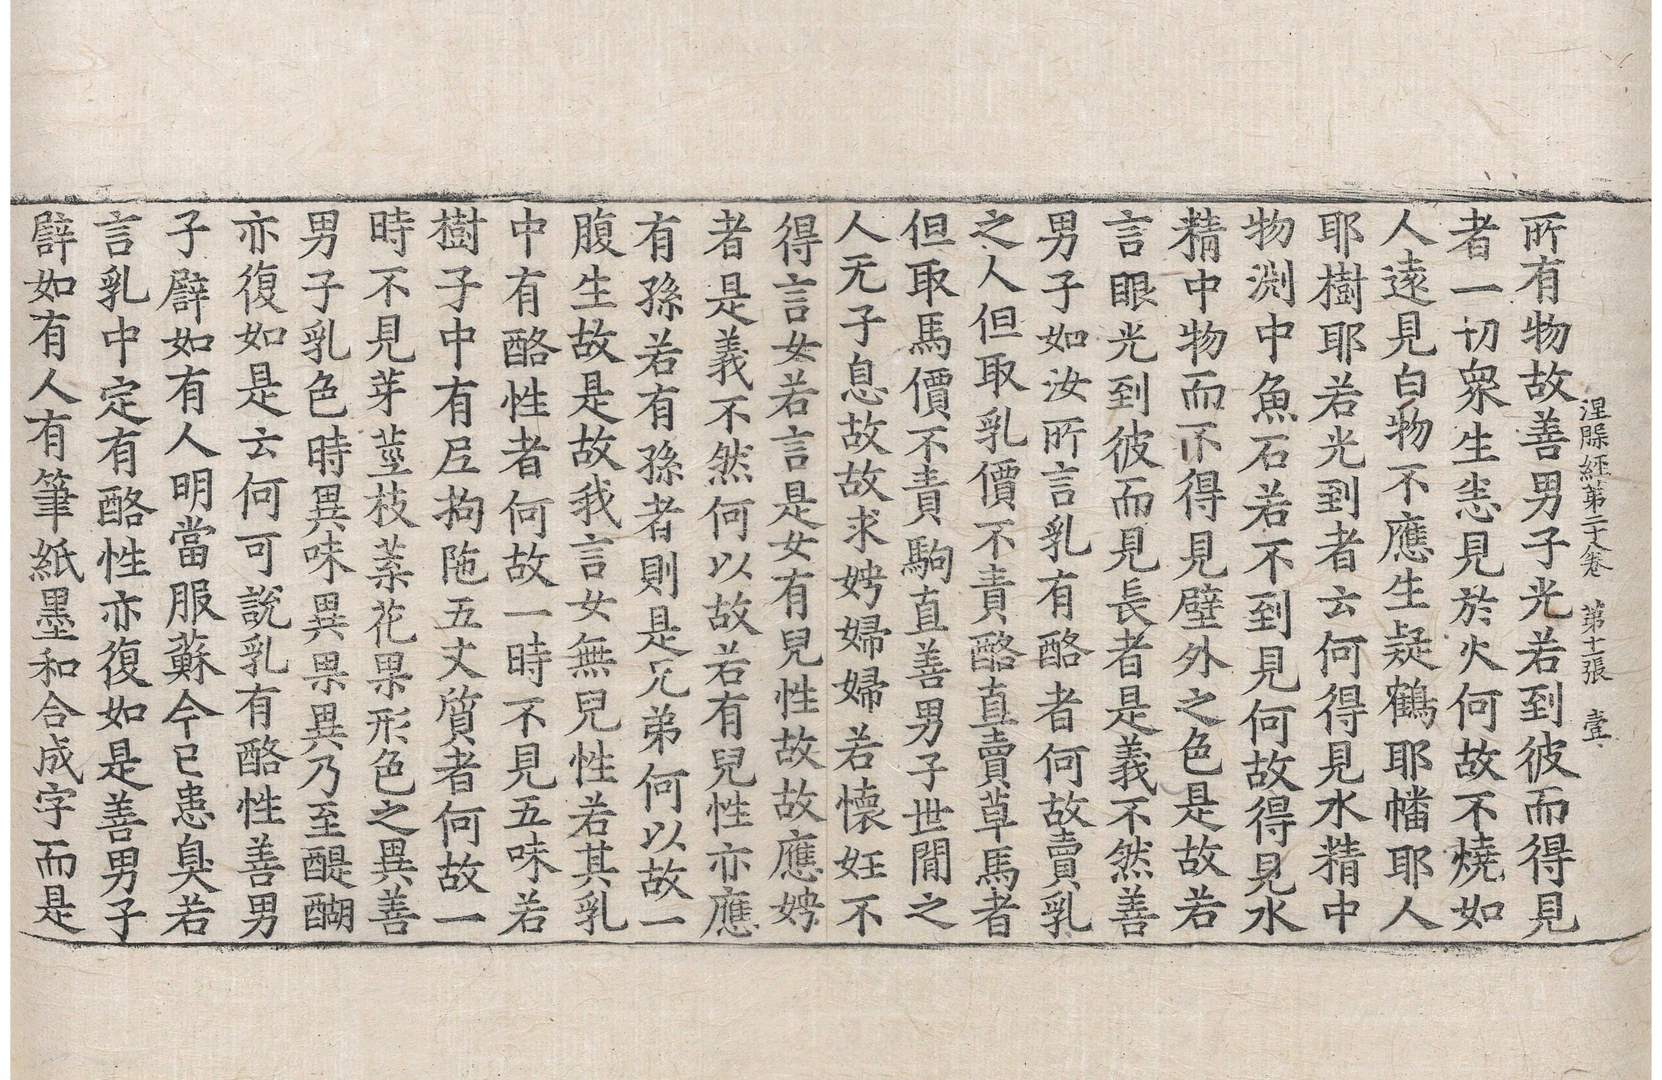 涅槃經第二十八卷　第十一張　壹
所有物故善男子光若到彼而得見
者一切衆生悉見於火何故不燒如
人遠見白物不應生疑鶴耶幡耶人
耶樹耶若光到者云何得見水精中
物渕中魚石若不到見何故得見水
精中物而不得見壁外之色是故若
言眼光到彼而見長者是義不然善
男子如汝所言乳有酪者何故賣乳
之人但取乳價不責酪直賣草馬者
但取馬價不責駒直善男子世間之
人无子息故故求娉婦婦若懷妊不
得言女若言是女有兒性故故應娉
者是義不然何以故若有兒性亦應
有孫若有孫者則是兄弟何以故一
腹生故是故我言女無兒性若其乳
中有酪性者何故一時不見五味若
樹子中有尼拘陁五丈質者何故一
時不見芽莖枝葉花果形色之異善
男子乳色時異味異果異乃至醍醐
亦復如是云何可說乳有酪性善男
子譬如有人明當服蘇今已患臭若
言乳中定有酪性亦復如是善男子
譬如有人有筆紙墨和合成字而是